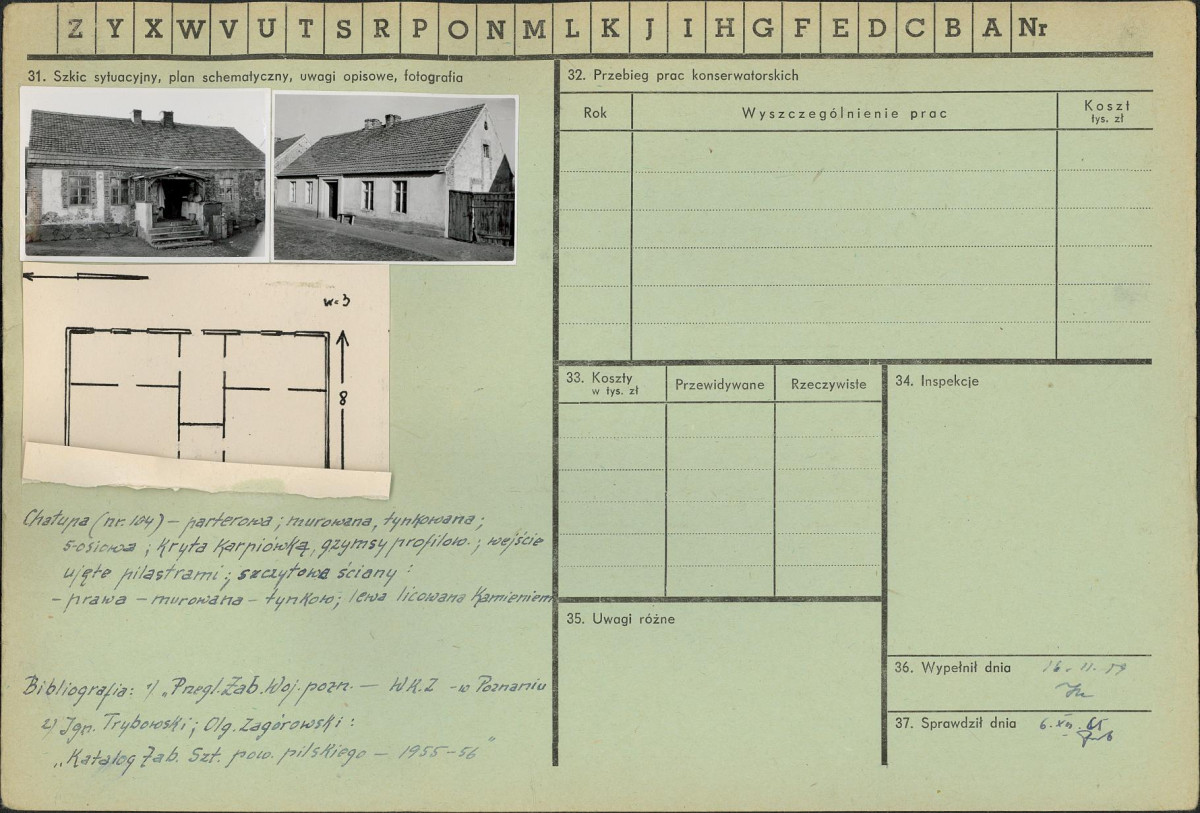 Z Y X W V U T S R P O N M L K J I H G F E D C B A Nr
31. Szkic sytuacyjny, plan schematyczny, uwagi opisowe, fotografia
w=3
8
Chałupa (nr. 104) – parterowa; murowana, tynkowana;
5-osiowa; kryta karpiówką, gzymsy profilow.; wejście
ujęte pilastrami; szczytowe ściany:
– prawa – murowana – tynkow; lewa licowana kamieniem
Bibliografia: 1/ „Przegl. Zab. Woj. pozn. – WK.Z – w Poznaniu
2/ Ign. Trybowski; Olg. Zagórowski:
„Katalog Zab. Szt. pow. pilskiego – 1955–56"
32. Przebieg prac konserwatorskich
Rok
Wyszczególnienie prac
Koszt
tys. zł
33. Koszty
w tys. zł
Przewidywane
Rzeczywiste
34. Inspekcje
35. Uwagi różne
36. Wypełnił dnia 16. 11. 59
37. Sprawdził dnia 6. XII. 65